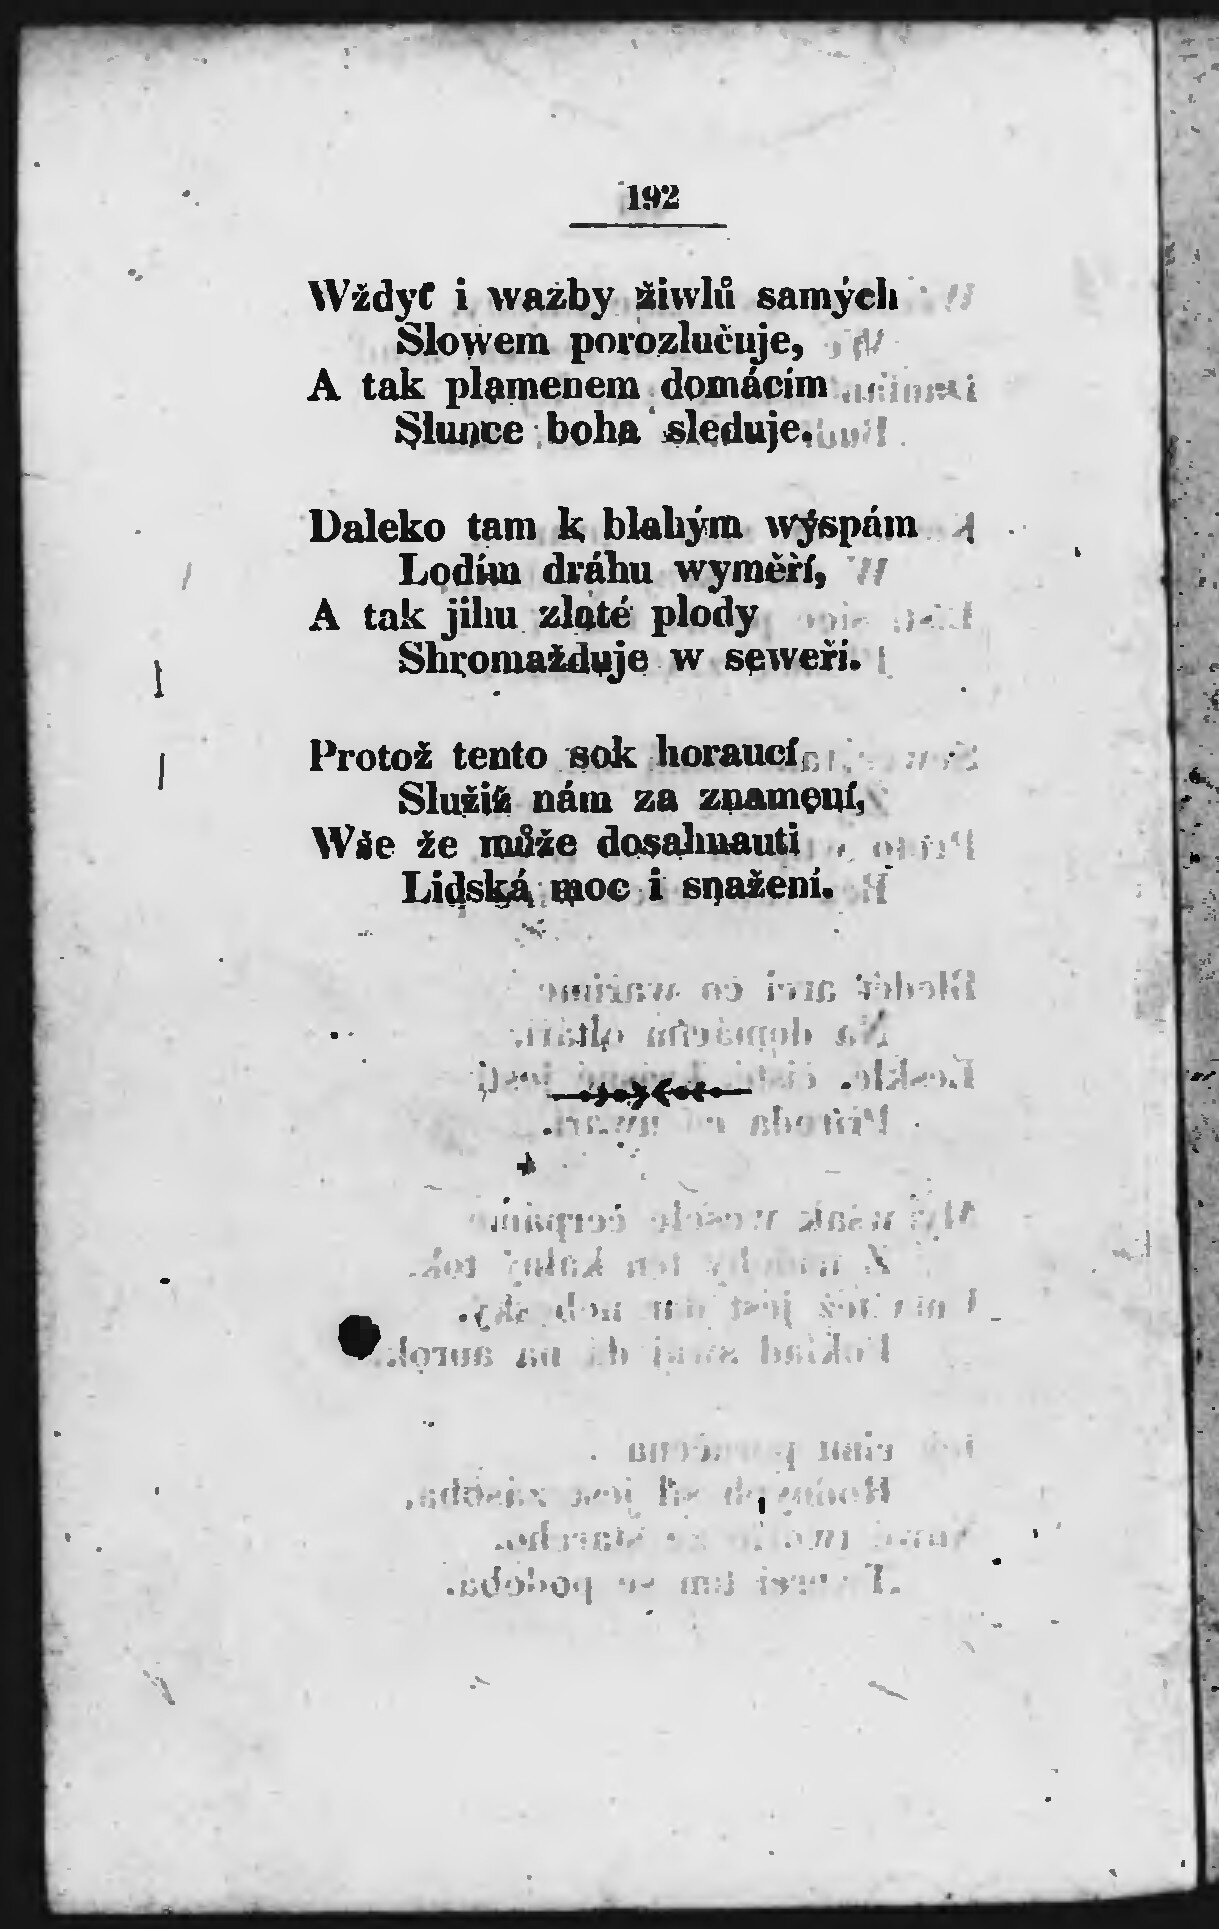 192
Wždyť i wazby žiwlů samých
Slowem porozlučuje,
A tak plamenem domácím
Slunce boha sleduje.
Daleko tam k blahým wýspám
Lodím dráhu wyměří,
A tak jihu zlaté plody
Shromažduje w seweři.
Protož tento sok horaucí
Služiž nám za znamení,
Wše že může dosahnauti
Lidská moc i snažení.